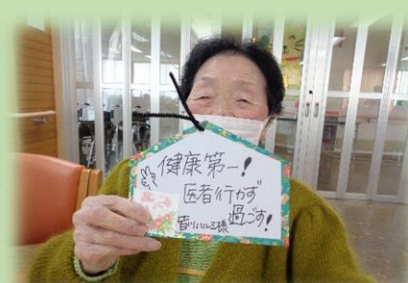 健康第一!
医者行かず
過ごす!
ハルミ様